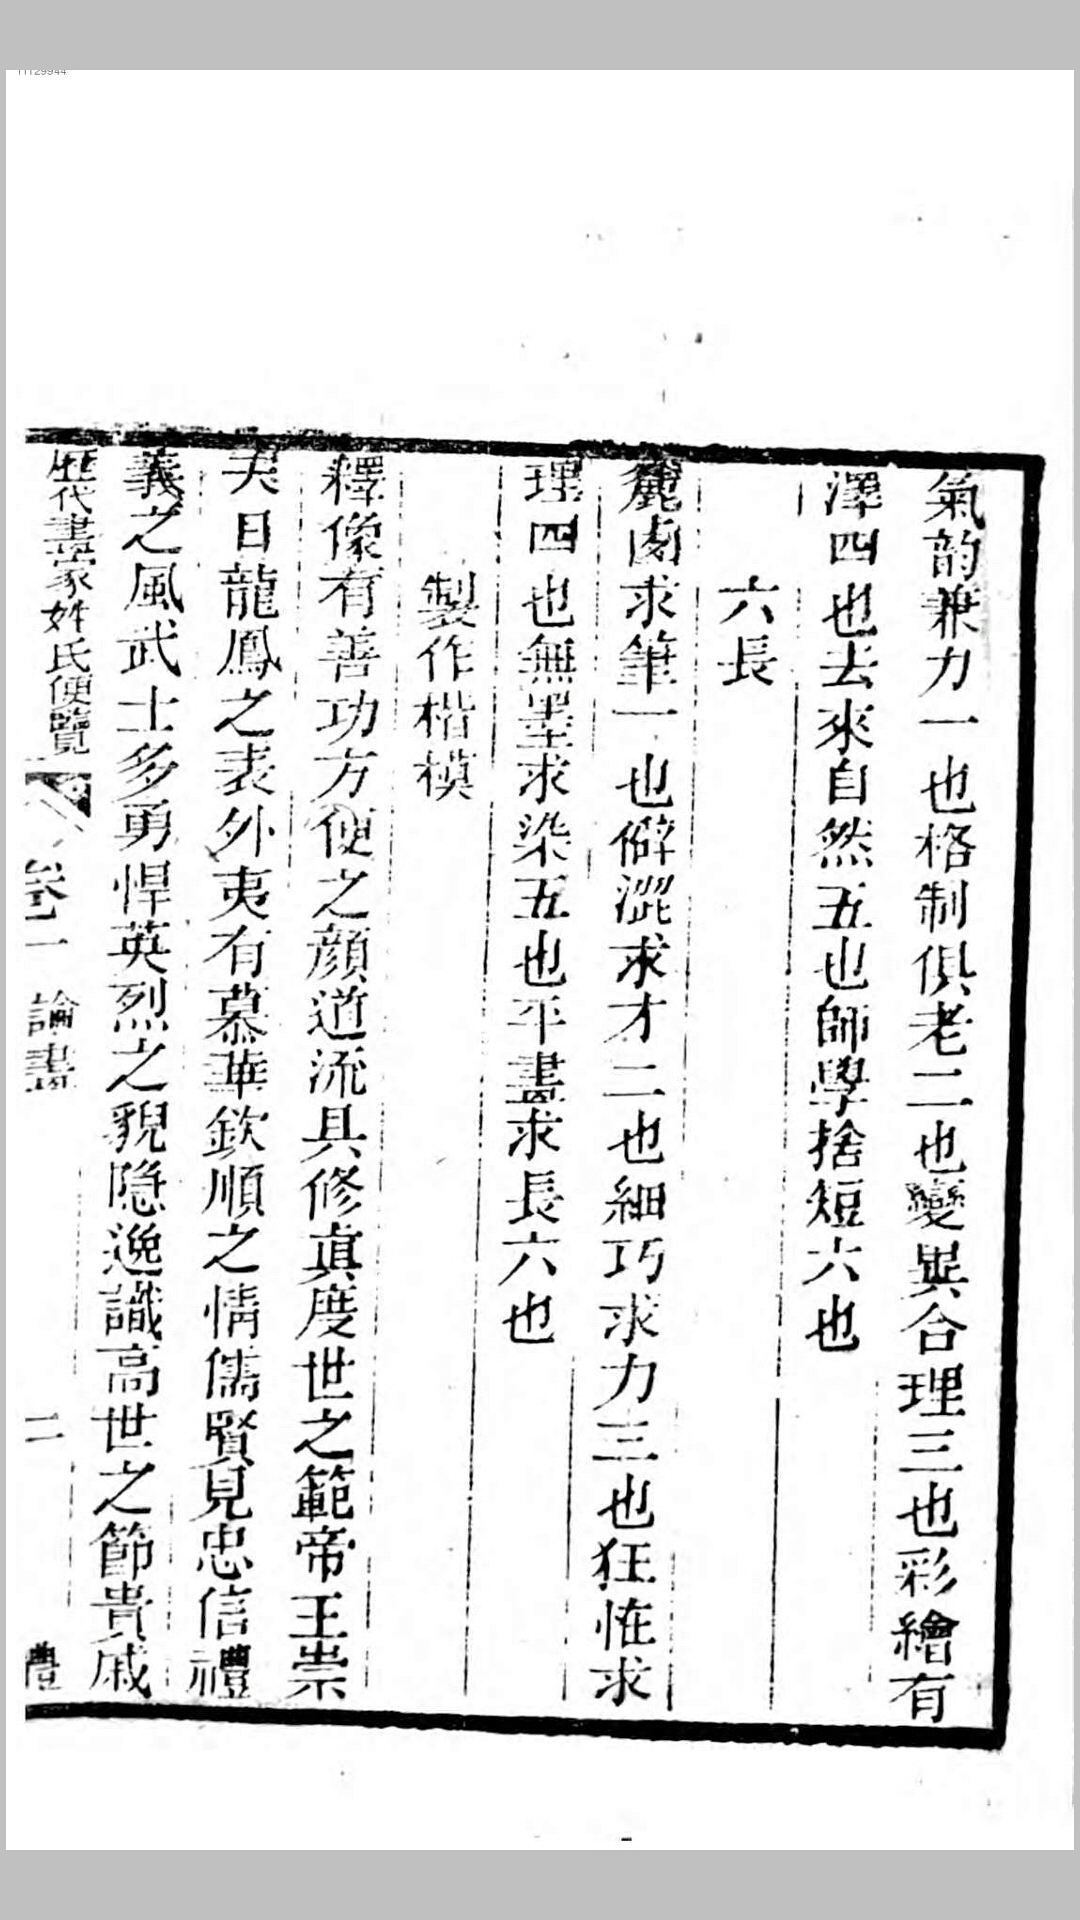 11129944
氣韵兼力一也格制俱老二也變異合理三也彩繪有
澤四也去來自然五也師學捨短六也
六長
麄鹵求筆一也僻澀求才二也細巧求力三也狂怪求
理四也無墨求染五也平畫求長六也
製作楷模
釋像有善功方便之顔道流具修眞度世之範帝王崇
天日龍鳳之表外夷有慕華欽順之情儒賢見忠信禮
義之風武士多勇悍英烈之貌隱逸識高世之節貴戚
歷代畫家姓氏便覽 卷一 論畫 二